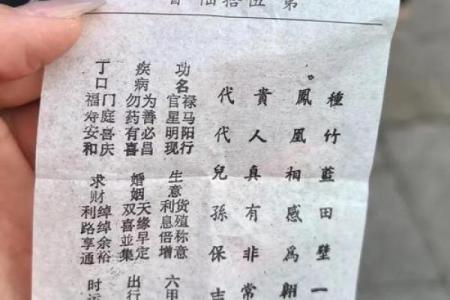 第伍拾陆首
種竹藍田壁一
鳳凰相感為翱
貴人真有非常
代代兒孫保吉
功名
禄马阳行
官星明现
疾病
为善必昌
勿药有喜
丁口
门庭喜庆
福寿安和
生意
货殖称意
利息倍增
婚姻
天缘早定
双喜並集
求财
绰绰余裕
利路享通
六甲
出行
时运